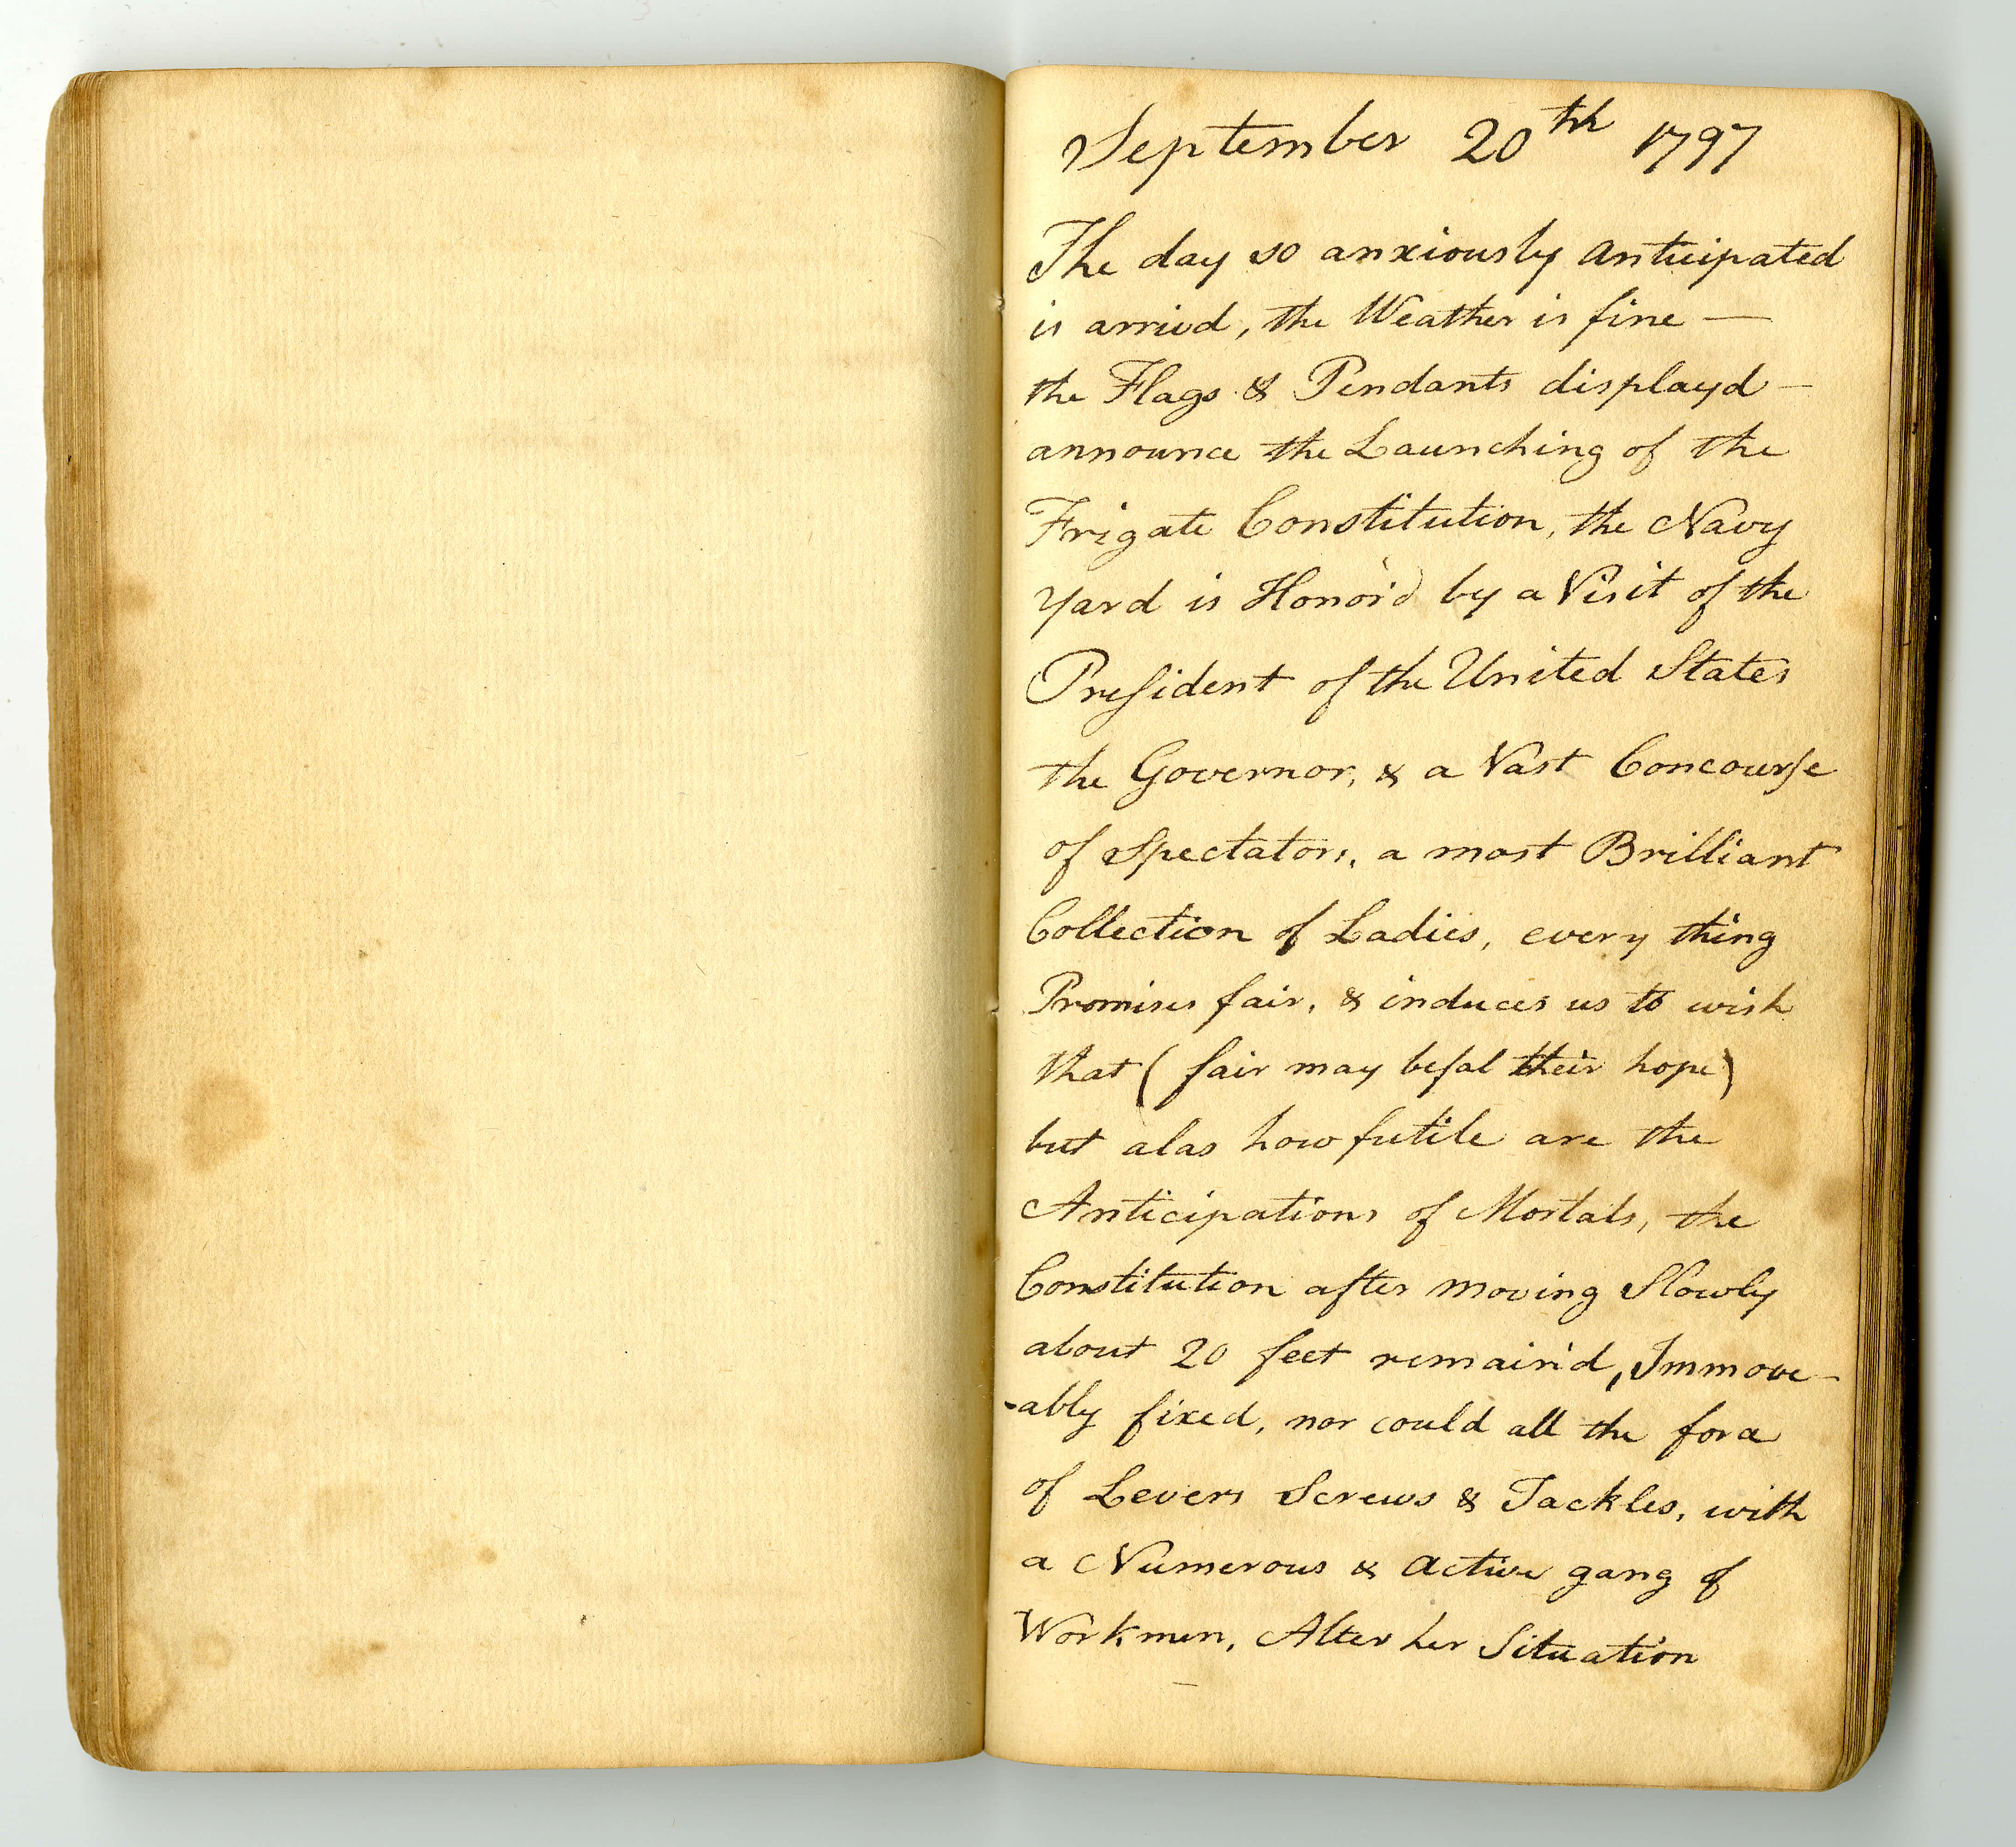 September 20th 1797
The day so anxiously anticipated
is arrivd, the Weather is fine —
the Flags & Pendants displayd —
announce the Launching of the
Frigate Constitution, the Navy
Yard is Honor'd by a Visit of the
Preſident of the United States
the Governor, & a Vast Concourſe
of Spectators, a most Brilliant
Collection of Ladies, every thing
Promises fair, & induces us to wish
that (fair may befal their hope)
but alas how futile are the
Anticipations of Mortals, the
Constitution after moving Slowly
about 20 feet remain'd, Immove-
-ably fixed, nor could all the force
of Levers Screws & Tackles, with
a Numerous & active gang of
Workmen, Alter her Situation